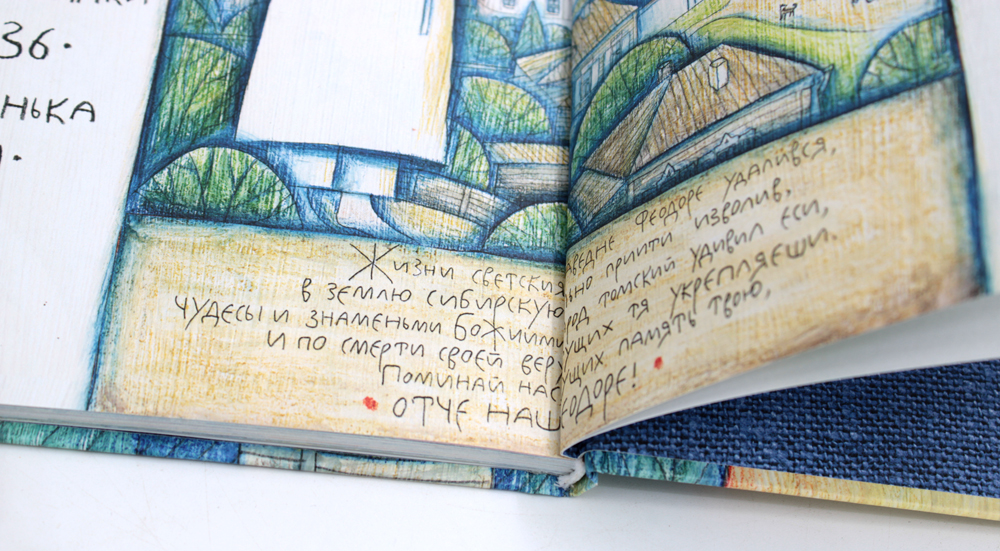 36.
нька
Жизни светския аведне Феодоре удалився,
в землю сибирскую ьно прийти изволив,
чудесы и знаменьми Божиими род томский удивил еси,
и по смерти своей вер ущих тя укрепляеши.
Поминай нас ущих память твою,
отче наш еодоре!